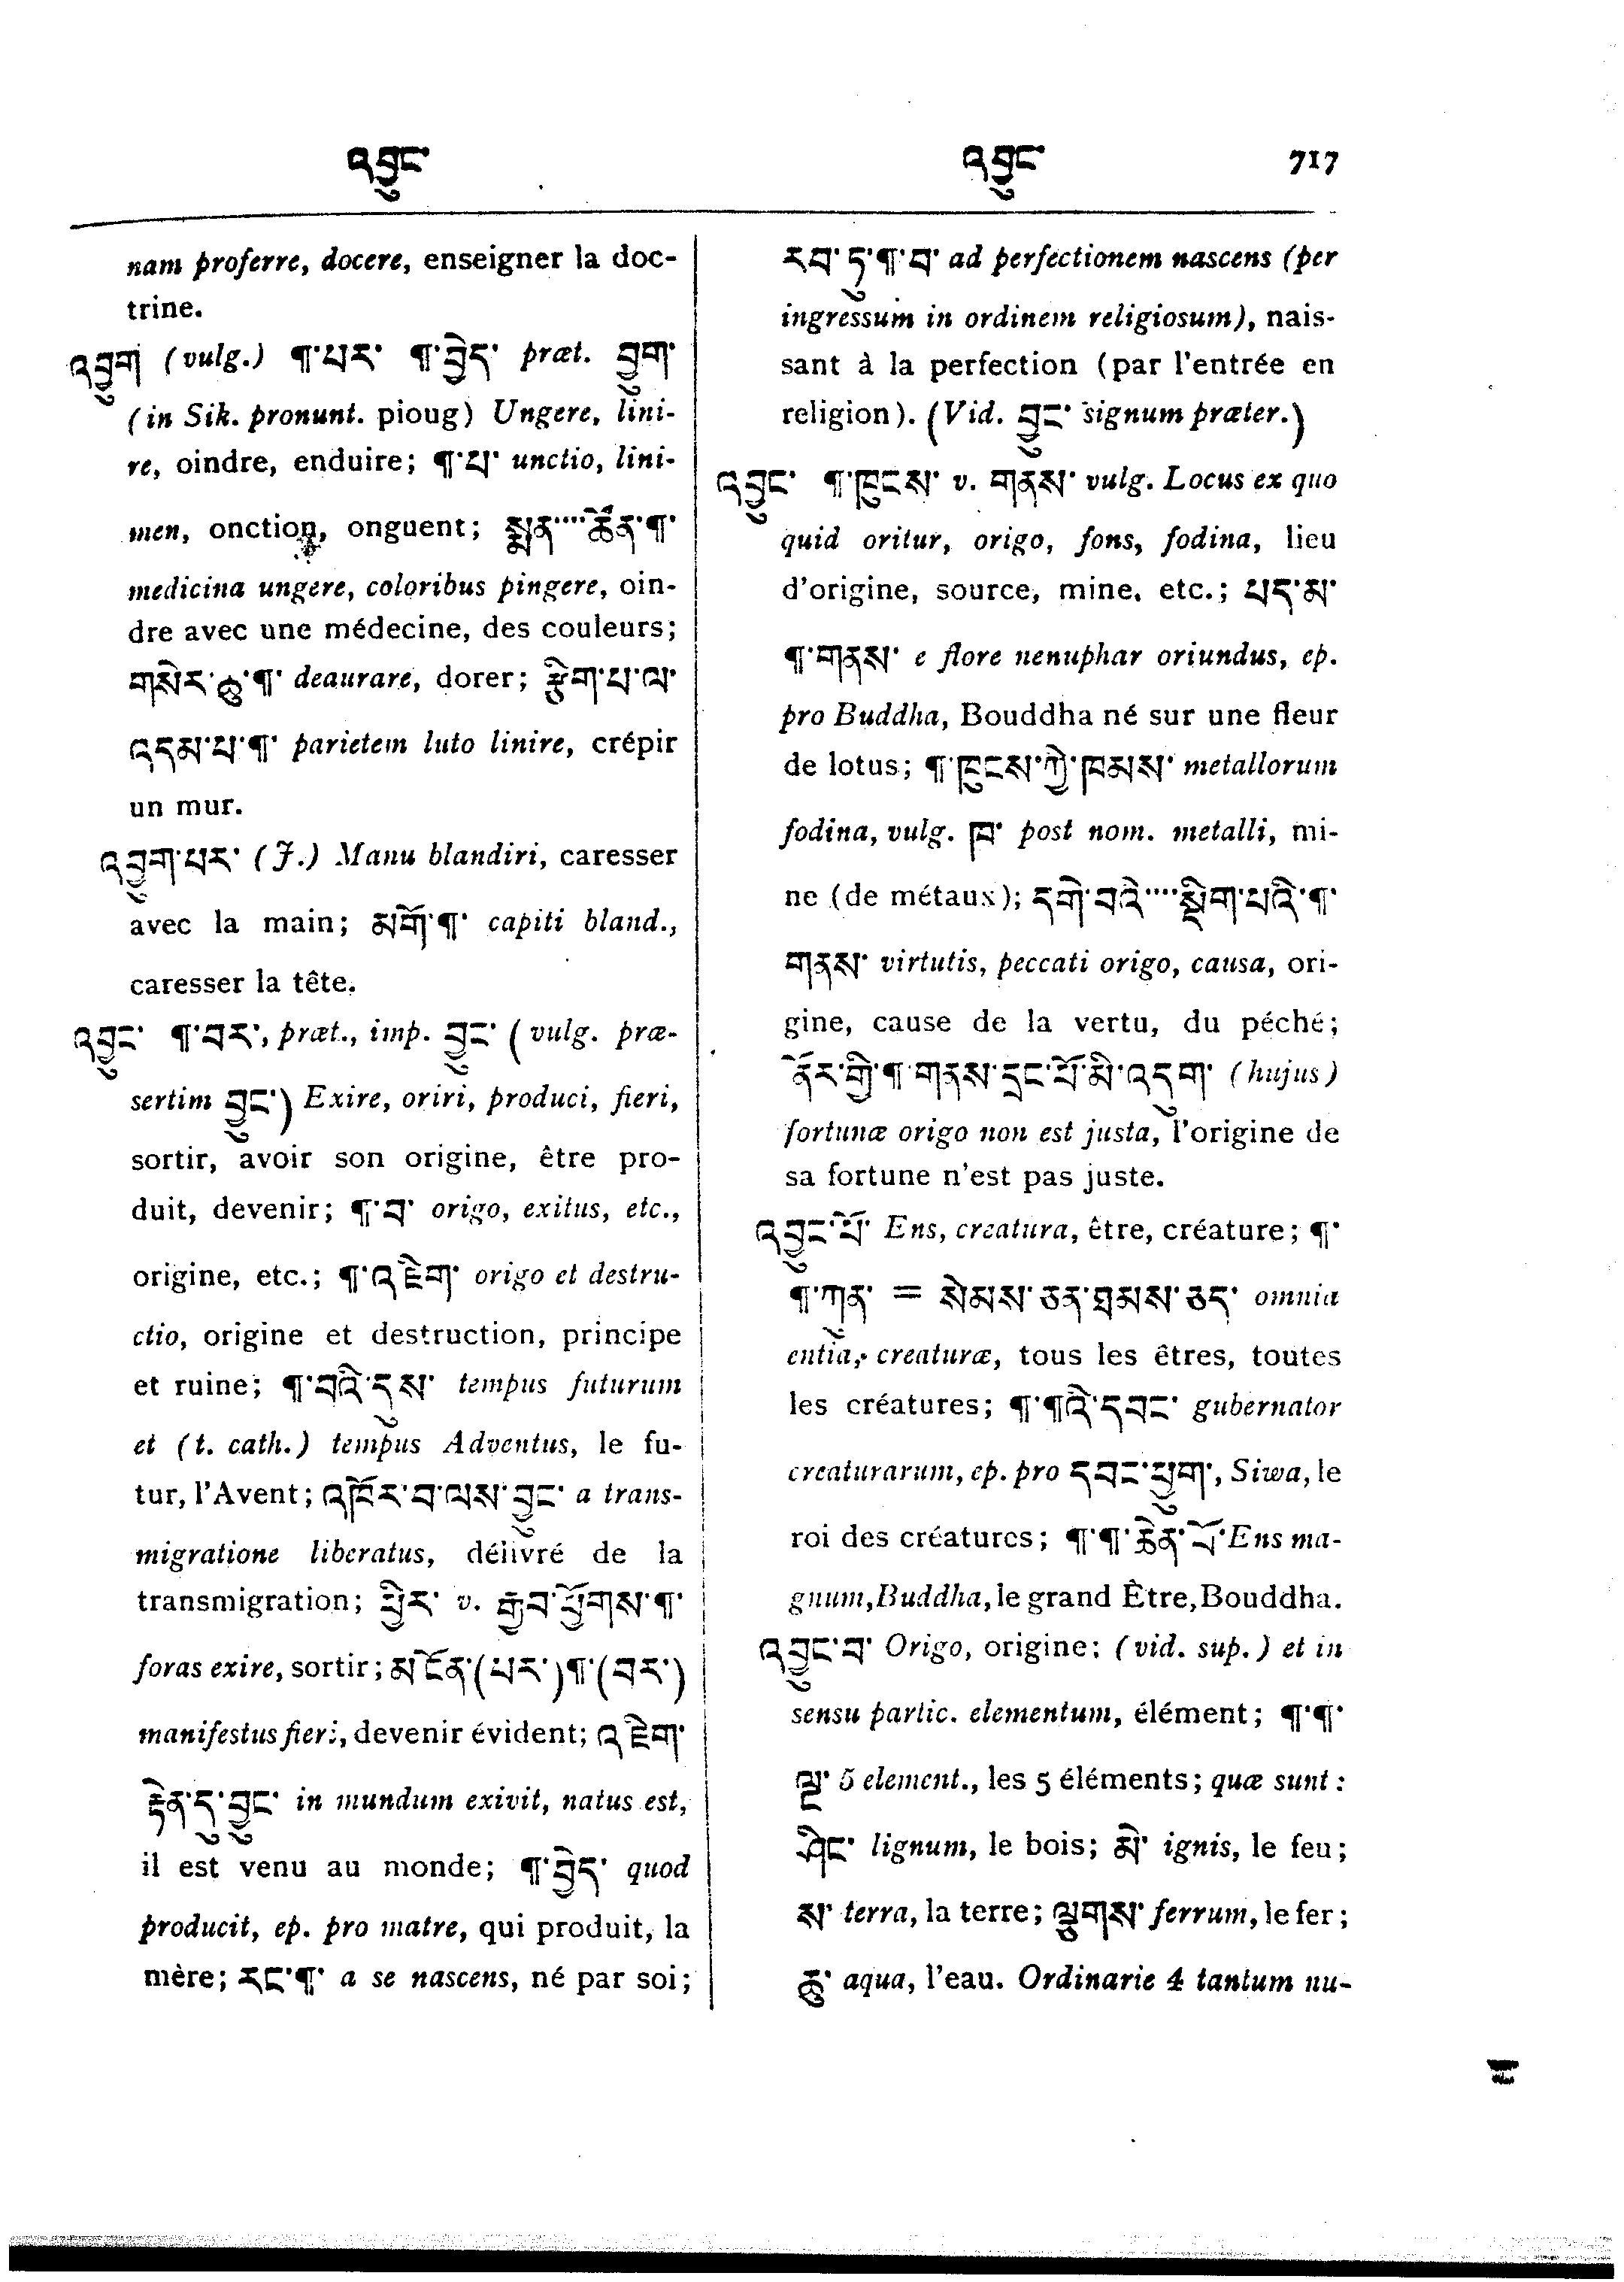 འབྱུང་ འབྱུང་ 717
nam proferre, docere, enseigner la doc-
trine.
འབྱུག (vulg.) ¶་པར་ ¶་བྱེད་ præt. བྱུག་
(in Sik. pronunt. pioug) Ungere, lini-
re, oindre, enduire; ¶་པ་ unctio, lini-
men, onction, onguent; སྨན་....ཚོན་¶་
medicina ungere, coloribus pingere, oin-
dre avec une médecine, des couleurs;
གསེར་ཆུ་¶་ deaurare, dorer; རྩིག་པ་ལ་
འདམ་པ་¶་ parietem luto linire, crépir
un mur.
འབྱུག་པར་ (J.) Manu blandiri, caresser
avec la main; མགོ་¶་ capiti bland.,
caresser la tête.
འབྱུང་ ¶་བར་, præt., imp. བྱུང་ (vulg. præ-
sertim བྱུང་) Exire, oriri, produci, fieri,
sortir, avoir son origine, être pro-
duit, devenir; ¶་བ་ origo, exitus, etc.,
origine, etc.; ¶་འཇིག་ origo et destru-
ctio, origine et destruction, principe
et ruine; ¶་བའི་དུས་ tempus futurum
et (t. cath.) tempus Adventus, le fu-
tur, l'Avent; འཁོར་བ་ལས་བྱུང་ a trans-
migratione liberatus, délivré de la
transmigration; ཕྱིར་ v. རྒྱབ་ཕྱོགས་¶་
foras exire, sortir; མངོན་(པར་)¶་(བར་)
manifestus fieri, devenir évident; འཇིག་
རྟེན་དུ་བྱུང་ in mundum exivit, natus est,
il est venu au monde; ¶་བྱེད་ quod
producit, ep. pro matre, qui produit, la
mère; རང་¶་ a se nascens, né par soi;
རབ་ཏུ་¶་བ་ ad perfectionem nascens (per
ingressum in ordinem religiosum), nais-
sant à la perfection (par l'entrée en
religion). (Vid. བྱུང་ signum præter.)
འབྱུང་ ¶་ཁུངས་ v. གནས་ vulg. Locus ex quo
quid oritur, origo, fons, fodina, lieu
d'origine, source, mine, etc.; པད་མ་
¶་གནས་ e flore nenuphar oriundus, ep.
pro Buddha, Bouddha né sur une fleur
de lotus; ¶་ཁུངས་ཀྱི་ཁམས་ metallorum
fodina, vulg. ཁ་ post nom. metalli, mi-
ne (de métaux); དགེ་བའི་....སྡིག་པའི་¶་
གནས་ virtutis, peccati origo, causa, ori-
gine, cause de la vertu, du péché;
ནོར་གྱི་¶་གནས་དྲང་པོ་མི་འདུག་ (hujus)
fortunæ origo non est justa, l'origine de
sa fortune n'est pas juste.
འབྱུང་པོ་ Ens, creatura, être, créature; ¶་
¶་ཀུན་ = སེམས་ཅན་ཐམས་ཅད་ omnia
entia, creaturæ, tous les êtres, toutes
les créatures; ¶་¶འི་དབང་ gubernator
creaturarum, ep. pro དབང་ཕྱུག་, Siwa, le
roi des créatures; ¶་¶་ཆེན་པོ་ Ens ma-
gnum, Buddha, le grand Être, Bouddha.
འབྱུང་བ་ Origo, origine; (vid. sup.) et in
sensu partic. elementum, élément; ¶་¶་
ལྔ་ 5 element., les 5 éléments; quæ sunt:
ཤིང་ lignum, le bois; མེ་ ignis, le feu;
ས་ terra, la terre; ལྕགས་ ferrum, le fer;
ཆུ་ aqua, l'eau. Ordinarie 4 tantum nu-